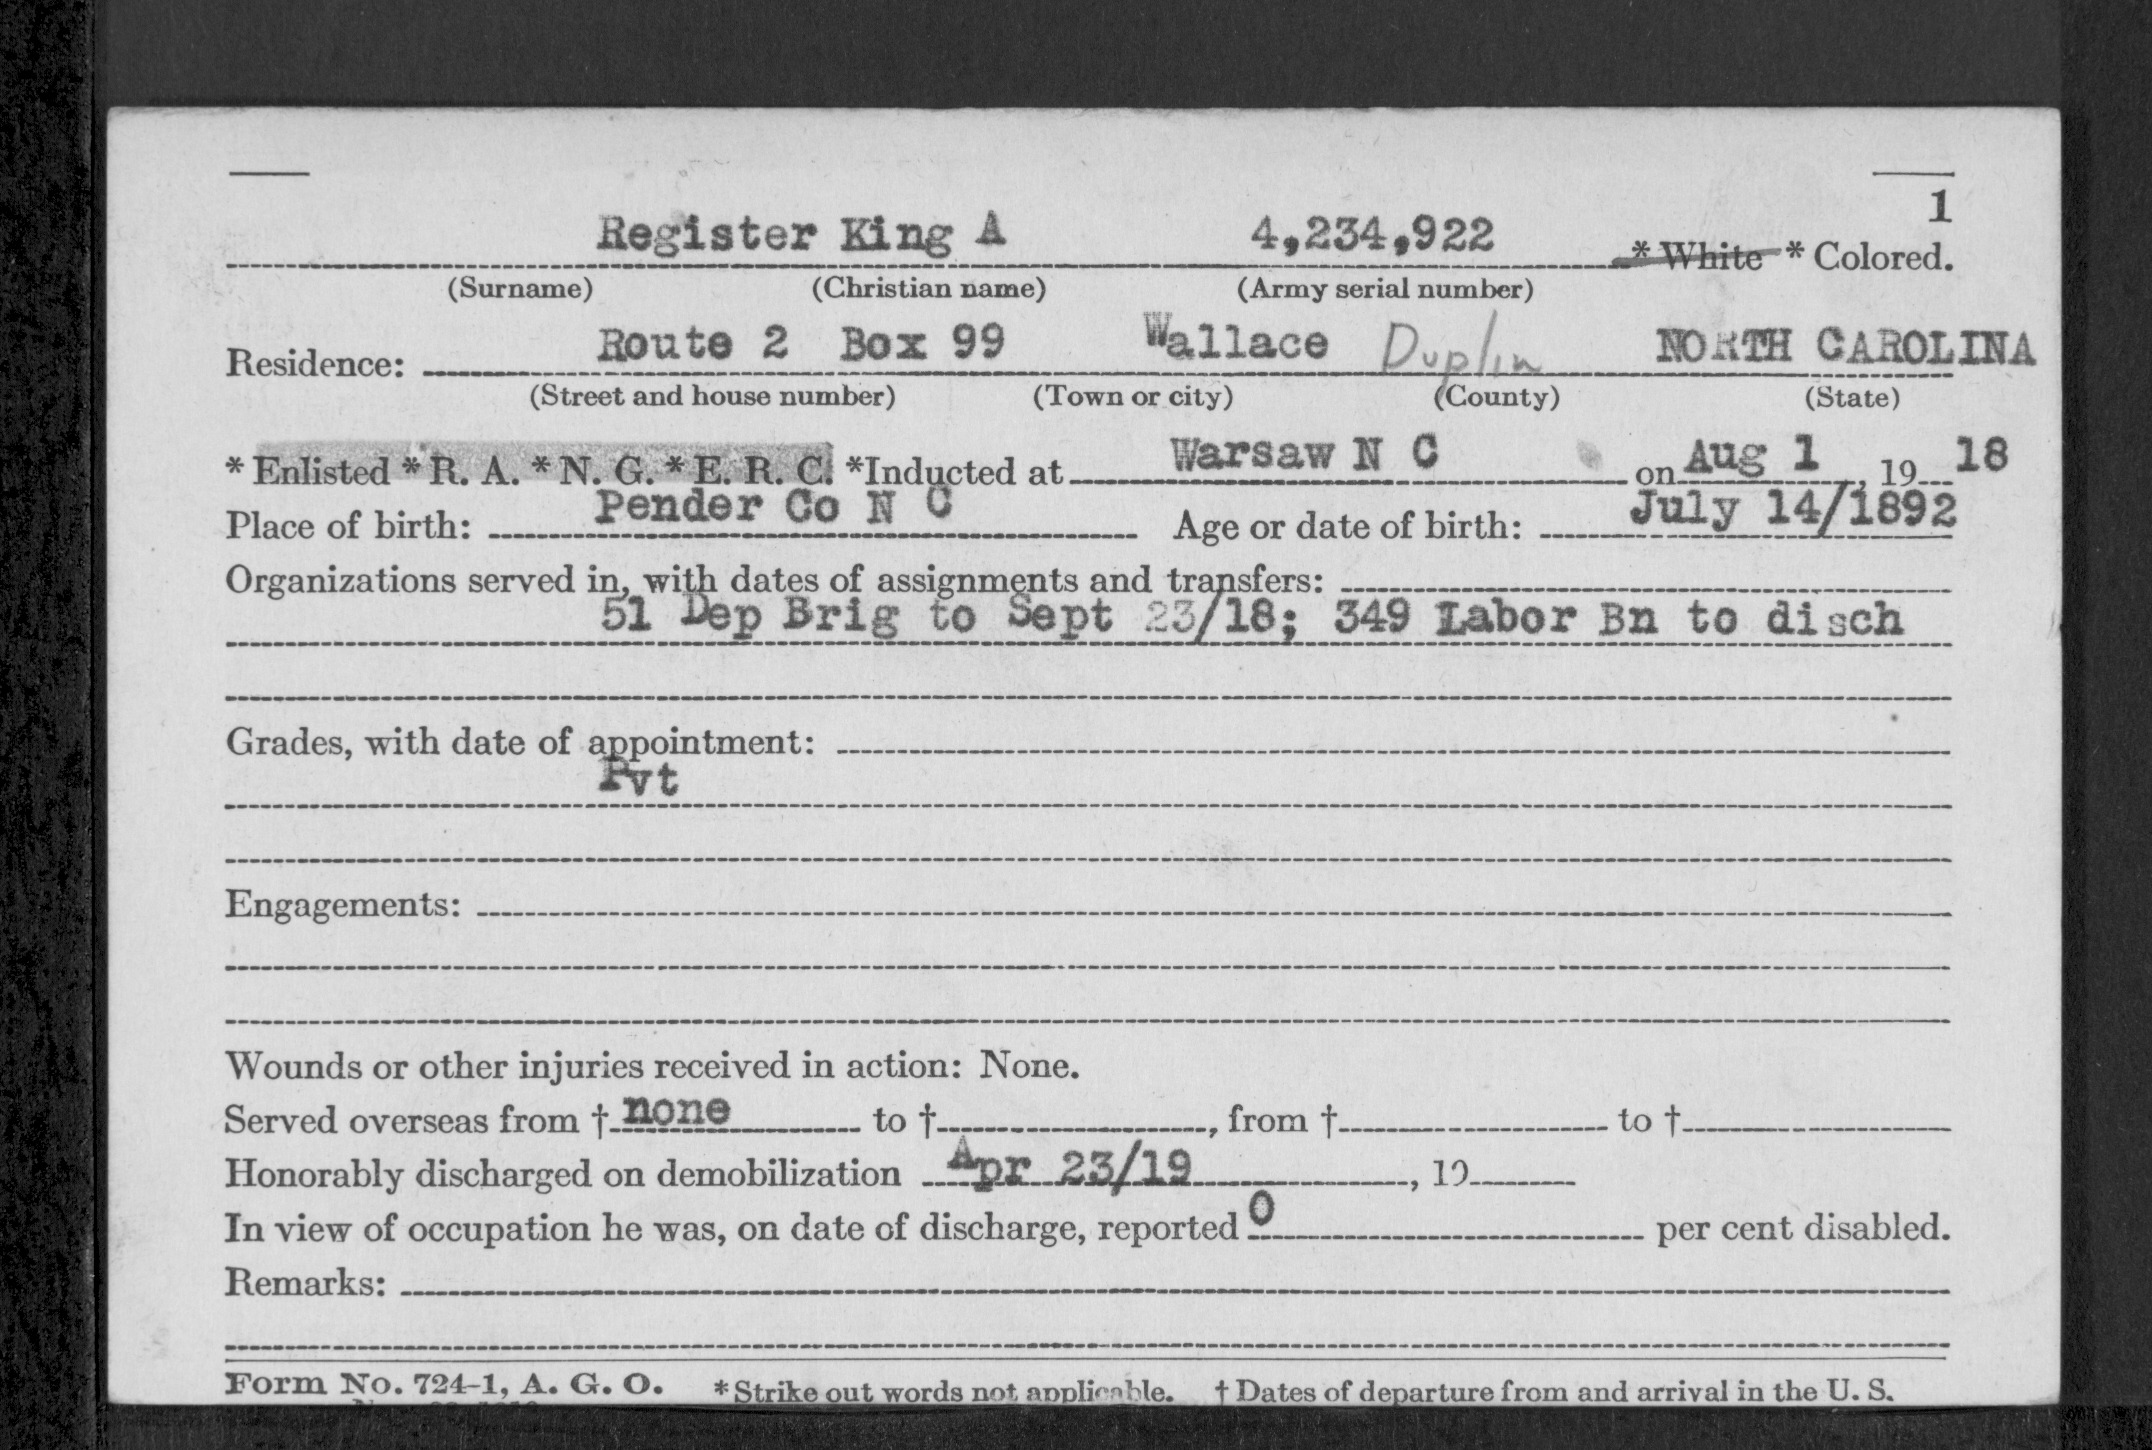 1
Register King A 4,234,922 * White * Colored.
(Surname) (Christian name) (Army serial number)
Residence: Route 2 Box 99 Wallace Duplin NORTH CAROLINA
(Street and house number) (Town or city) (County) (State)
* Enlisted * R. A. * N. G. * E. R. C. *Inducted at Warsaw N C on Aug 1, 19 18
Place of birth: Pender Co N C Age or date of birth: July 14/1892
Organizations served in, with dates of assignments and transfers:
51 Dep Brig to Sept 23/18; 349 Labor Bn to disch
Grades, with date of appointment:
Pvt
Engagements:
Wounds or other injuries received in action: None.
Served overseas from † none to †, from † to †
Honorably discharged on demobilization Apr 23/19, 19
In view of occupation he was, on date of discharge, reported 0 per cent disabled.
Remarks:
Form No. 724-1, A. G. O. * Strike out words not applicable. † Dates of departure from and arrival in the U. S.